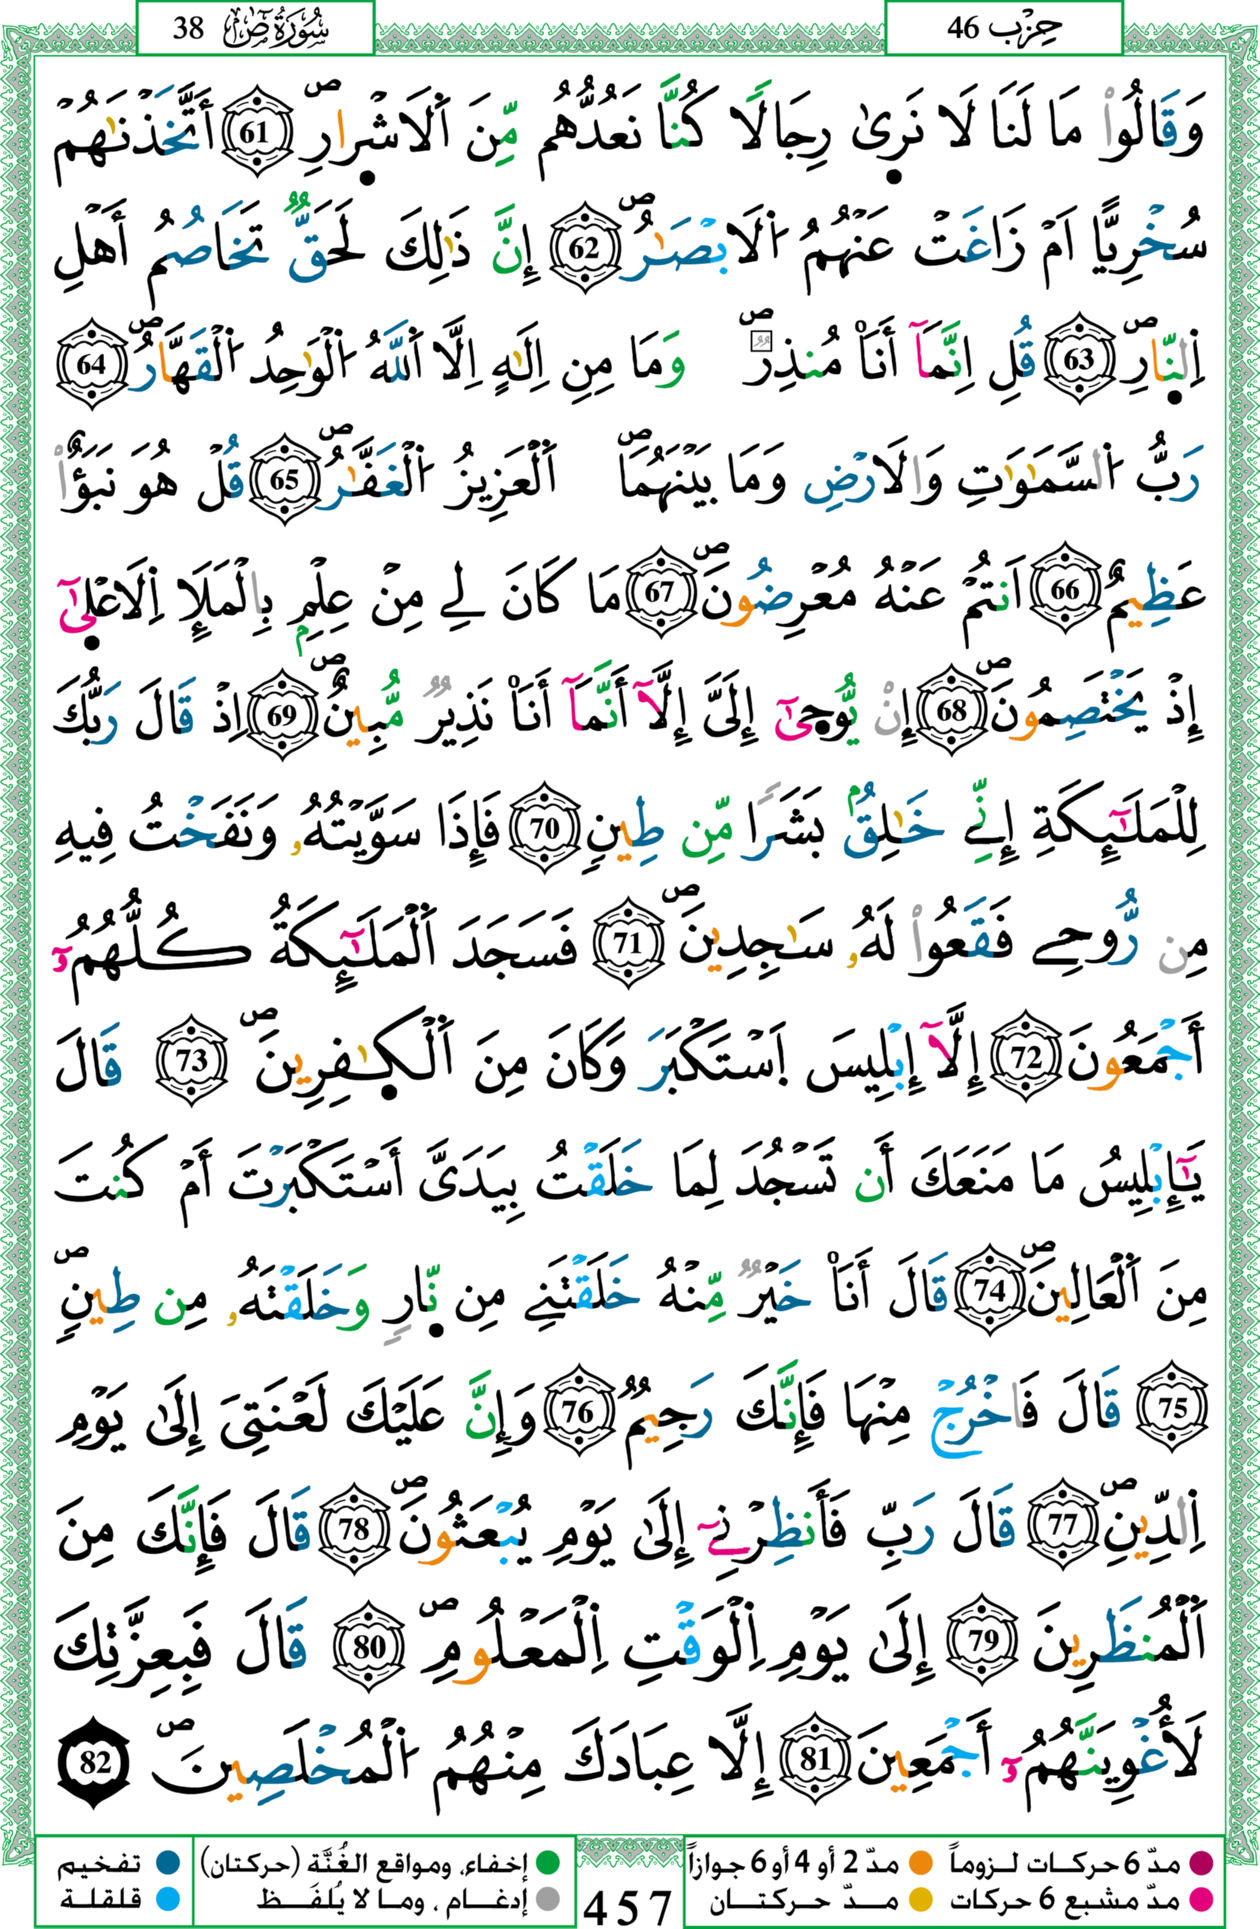 سُورَةُ صٓ 38
حِزْب 46
وَقَالُواْ مَا لَنَا لَا نَرٜىٰ رِجَالًا كُنَّا نَعُدُّهُم مِّنَ اَ۬لَاشْر۪ارِۖ 61 أَتَّخَذْنَٰهُمْ
سُخْرِيًّا اَمْ زَاغَتْ عَنْهُمُ اُ۬لَابْصَٰرُۖ 62 إِنَّ ذَٰلِكَ لَحَقٌّ تَخَاصُمُ أَهْلِ
اِ۬لنّ۪ارِۖ 63 قُلِ اِنَّمَآ أَنَا۠ مُنذِرٌۖ وَمَا مِنِ اِلَٰهٍ اِلَّا اَ۬للَّهُ اُ۬لْوَٰحِدُ اُ۬لْقَهَّارُۖ 64
رَبُّ اُ۬لسَّمَٰوَٰتِ وَالَارْضِ وَمَا بَيْنَهُمَاۖ اَ۬لْعَزِيزُ اُ۬لْغَفَّٰرُۖ 65 قُلْ هُوَ نَبَؤٌاْ
عَظِيمٌ 66 اَنتُمْ عَنْهُ مُعْرِضُونَۖ 67 مَا كَانَ لِے مِنْ عِلْمِۢ بِالْمَلَإِ اِ۬لَاعْل۪ىٰٓ
إِذْ يَخْتَصِمُونَۖ 68 إِنْ يُّوح۪ىٰٓ إِلَيَّ إِلَّآ أَنَّمَآ أَنَا۠ نَذِيرٌ مُّبِينٌۖ 69 اِذْ قَالَ رَبُّكَ
لِلْمَلَٰٓئِكَةِ إِنِّے خَٰلِقُۢ بَشَرًا مِّن طِينٍ 70 فَإِذَا سَوَّيْتُهُۥ وَنَفَخْتُ فِيهِ
مِن رُّوحِے فَقَعُواْ لَهُۥ سَٰجِدِينَۖ 71 فَسَجَدَ اَ۬لْمَلَٰٓئِكَةُ كُلُّهُمُۥٓ
أَجْمَعُونَ 72 إِلَّآ إِبْلِيسَ اَ۪سْتَكْبَرَ وَكَانَ مِنَ اَ۬لْكٰ۪فِرِينَۖ 73 قَالَ
يَٰٓإِبْلِيسُ مَا مَنَعَكَ أَن تَسْجُدَ لِمَا خَلَقْتُ بِيَدَيَّ أَسْتَكْبَرْتَ أَمْ كُنتَ
مِنَ اَ۬لْعَالِينَۖ 74 قَالَ أَنَا۠ خَيْرٌ مِّنْهُ خَلَقْتَنِے مِن نّ۪ارٍ وَخَلَقْتَهُۥ مِن طِينٍۖ
75 قَالَ فَاخْرُجْ مِنْهَا فَإِنَّكَ رَجِيمٌ 76 وَإِنَّ عَلَيْكَ لَعْنَتِيَ إِلَىٰ يَوْمِ
اِ۬لدِّينِۖ 77 قَالَ رَبِّ فَأَنظِرْنِےٓ إِلَىٰ يَوْمِ يُبْعَثُونَۖ 78 قَالَ فَإِنَّكَ مِنَ
اَ۬لْمُنظَرِينَ 79 إِلَىٰ يَوْمِ اِ۬لْوَقْتِ اِ۬لْمَعْلُومِۖ 80 قَالَ فَبِعِزَّتِكَ
لَأُغْوِيَنَّهُمُۥٓ أَجْمَعِينَ 81 إِلَّا عِبَادَكَ مِنْهُمُ اُ۬لْمُخْلَصِينَۖ 82
مدّ 6 حركات لـزوماً
مدّ 2 أو 4 أو 6 جوازاً
إخفاء، ومواقع الغُنَّة (حركتان)
تفخيم
مدّ مشبع 6 حركات
مــدّ حــركتــان
إدغــام ، ومـا لا يُلفَــظ
قلقلة
457